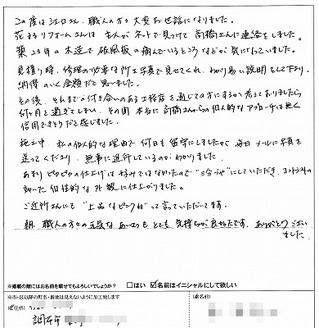 この度はシェロさん、職人の方々大変お世話になりました。
花まるリフォームさんは夫がネットで見つけて高橋さんに連絡をしました。
築23年の木造で破風板の痛んでいるところなどが気になっていました。
見積り時、修理の必要な所を写真で見せてくれ、わかり易い説明をして下さり、
納得のいく金額だと思いました。
その後、それまで付き合いのある工務店を通じての方にするか考えておりましたら
何ヶ月も過ぎてしまい、その間本当に高橋さんからの個人的なアプローチは無く
信用できそうだと感じました。
施工中 私の個人的な理由で何日も留守にしましたので、毎日メールに写真を
送ってくださり、無事に進行しているのがわかりました。
あまりピカピカの仕上げは好みではなかったので"3分つや"にしていただき、
個性的な外観に仕上がりました。
ご近所さんにも"上品なピンクね"って言っていただいてます。
朝、職人の方々の元気なあいさつもとても気持ちが良かったです。ありがとうござい
ました。
※掲載の際にはお名前を載せてもよろしいでしょうか? □はい ☑名前はイニシャルにして欲しい
調布市